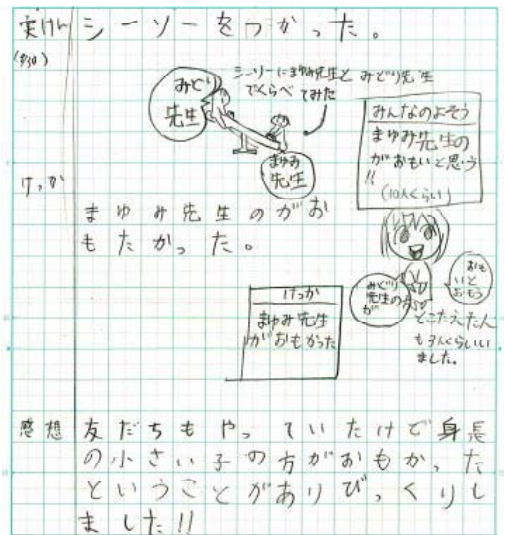 実けん
シーソーをつかった。
(9/30)
シーソーにまゆみ先生とみどり先生
でくらべてみた
みどり
先生
まゆみ
先生
みんなのよそう
まゆみ先生の
がおもいと思う
!!
(10人くらい)
けっか
まゆみ先生のがお
もたかった。
みどり
先生の方
が
おも
いと
おもう
とこたえたん
も3人くらいい
ました。
けっか
まゆみ先生
がおもかった
感想
友だちもやっていたけど身長
の小さい子の方がおもかった
ということがありびっくりし
ました!!